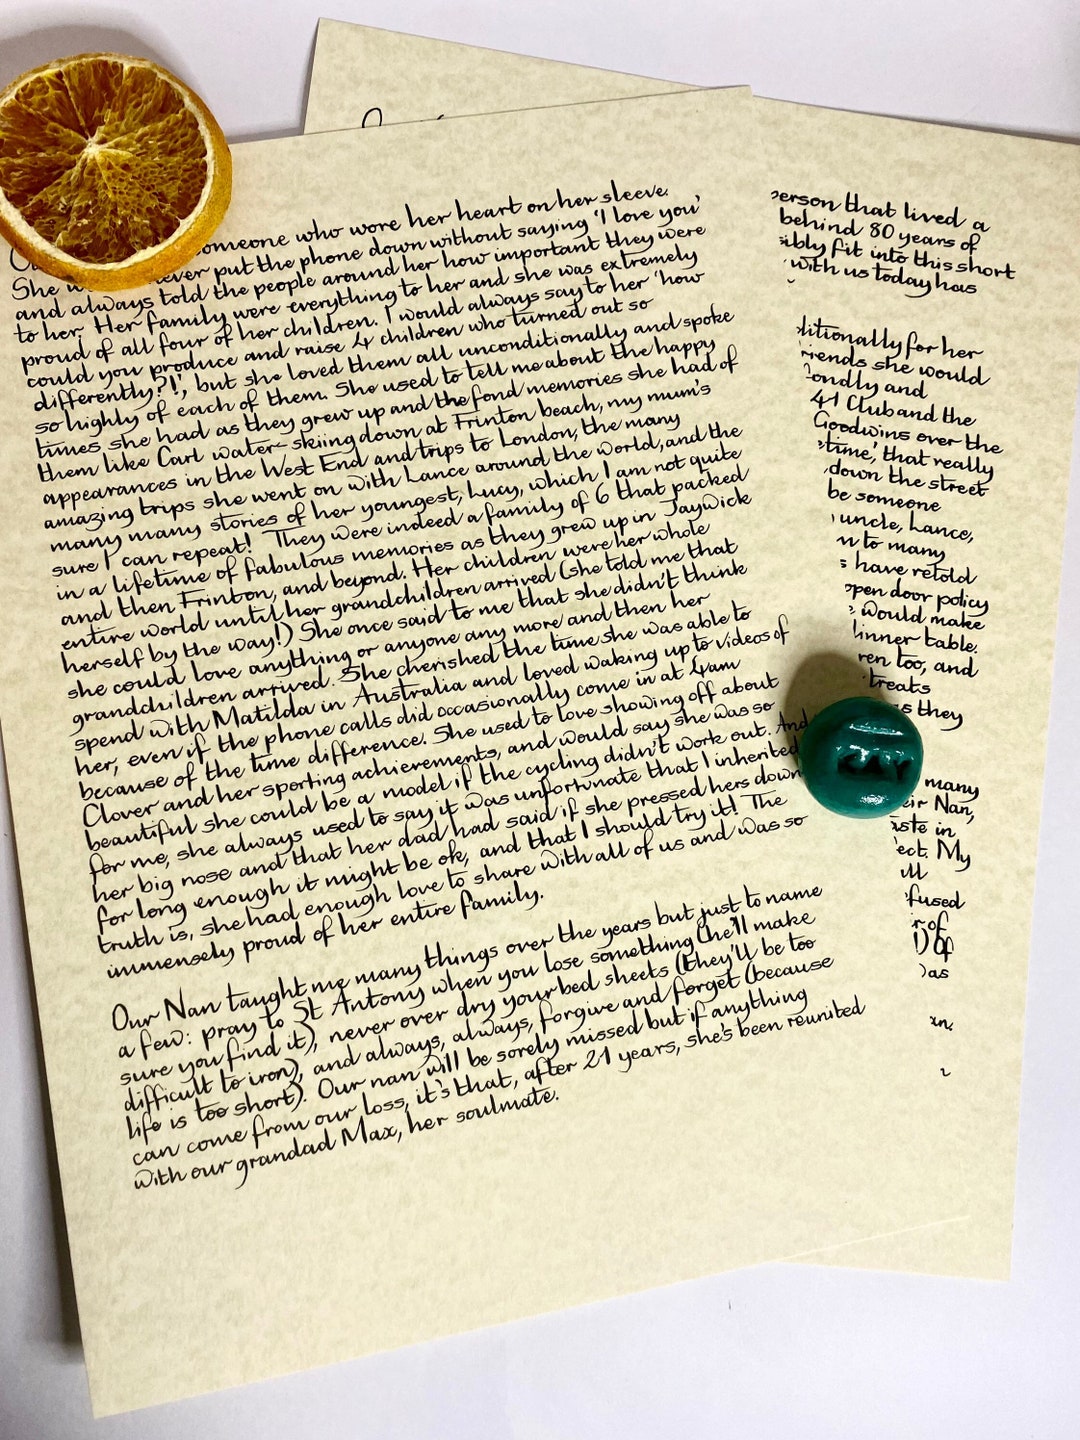 someone who wore her heart on her sleeve.
She never put the phone down without saying 'I love you'
and always told the people around her how important they were
to her. Her family were everything to her and she was extremely
proud of all four of her children. I would always say to her 'how
could you produce and raise 4 children who turned out so
differently?!', but she loved them all unconditionally and spoke
so highly of each of them. She used to tell me about the happy
times she had as they grew up and the fond memories she had of
them like Carl water-skiing down at Frinton beach, my mum's
appearances in the West End and trips to London, the many
amazing trips she went on with Lance around the world, and the
many many stories of her youngest, Lucy, which I am not quite
sure I can repeat! They were indeed a family of 6 that packed
in a lifetime of fabulous memories as they grew up in Jaywick
and then Frinton, and beyond. Her children were her whole
entire world until her grandchildren arrived (she told me that
herself by the way!) She once said to me that she didn't think
she could love anything or anyone any more and then her
grandchildren arrived. She cherished the time she was able to
spend with Matilda in Australia and loved waking up to videos of
her, even if the phone calls did occasionally come in at 4am
because of the time difference. She used to love showing off about
Clover and her sporting achievements, and would say she was so
beautiful she could be a model if the cycling didn't work out. And
for me, she always used to say it was unfortunate that I inherited
her big nose and that her dad had said if she pressed hers down
for long enough it might be ok, and that I should try it! The
truth is, she had enough love to share with all of us and was so
immensely proud of her entire family.
Our Nan taught me many things over the years but just to name
a few: pray to St Antony when you lose something (he'll make
sure you find it), never over dry your bed sheets (they'll be too
difficult to iron), and always, always, forgive and forget (because
life is too short). Our nan will be sorely missed but if anything
can come from our loss, it's that, after 21 years, she's been reunited
with our grandad Max, her soulmate.
person that lived a
behind 80 years of
fit into this short
with us today has
for her
she would
fondly and
41 Club and the
Goodwins over the
time, that really
down the street
be someone
uncle, Lance,
to many
have retold
open door policy
would make
dinner table.
too, and
treats
they
KAY
many
Nan,
in
My
of
of
as